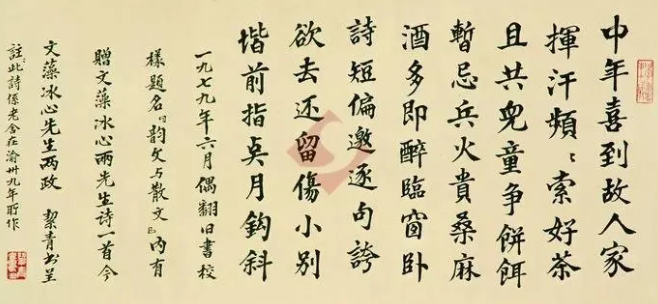 中年喜到故人家
揮汗頻〻索好茶
且共兒童争餅餌
暫忌兵火貴桑麻
酒多即醉臨窗卧
詩短偏邀逐句誇
欲去还留傷小别
堦前指奌月鈎斜
一九七九年六月偶翻旧書校
樣題名「韵文与散文」内有
贈文藻冰心兩先生詩一首今
文藻冰心先生两政 絜青书呈
註:此詩係老舍在渝卅九年所作